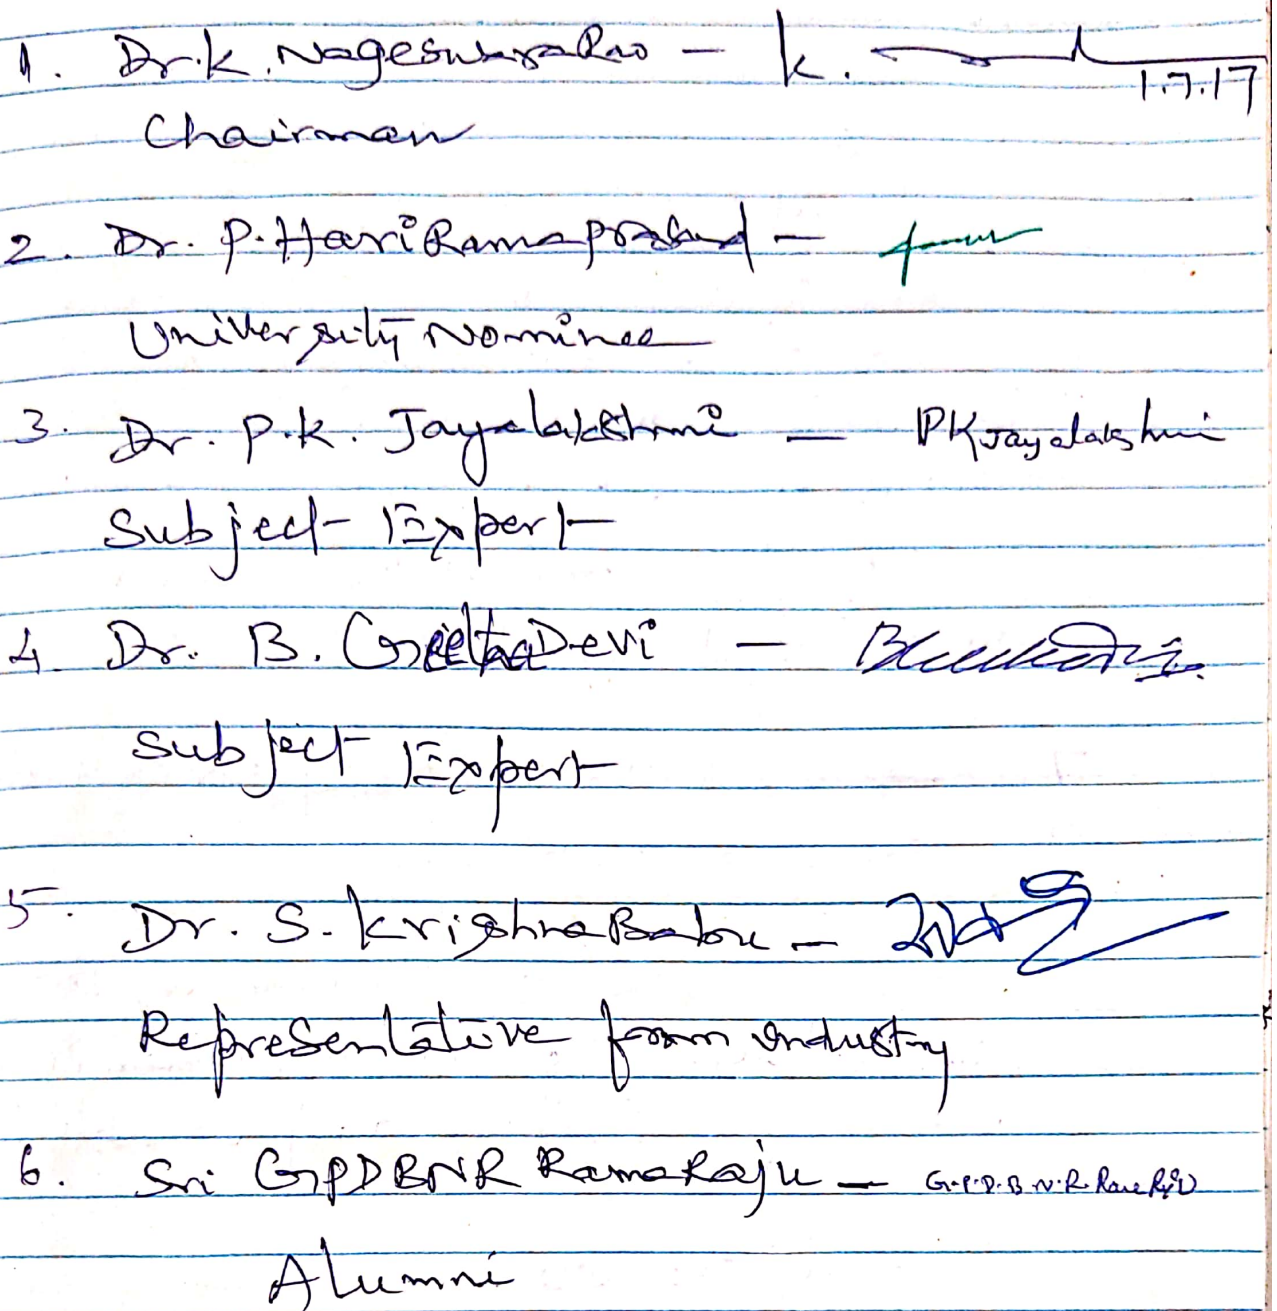 1. Dr.K. NageswaraRao - K.
1.7.17
Chairman
2. Dr. P. HariRamaprasad -
University Nominee
3. Dr. P.K. Jayalakshmi - PKJayalakshmi
Subject Expert
4. Dr. B. GeetaDevi -
Subject Expert
5. Dr. S. KrishnaBabu -
Representative from industry
6. Sri GPDBNR RamaRaju - G.P.D.B.N.R. Rama Raju
Alumni